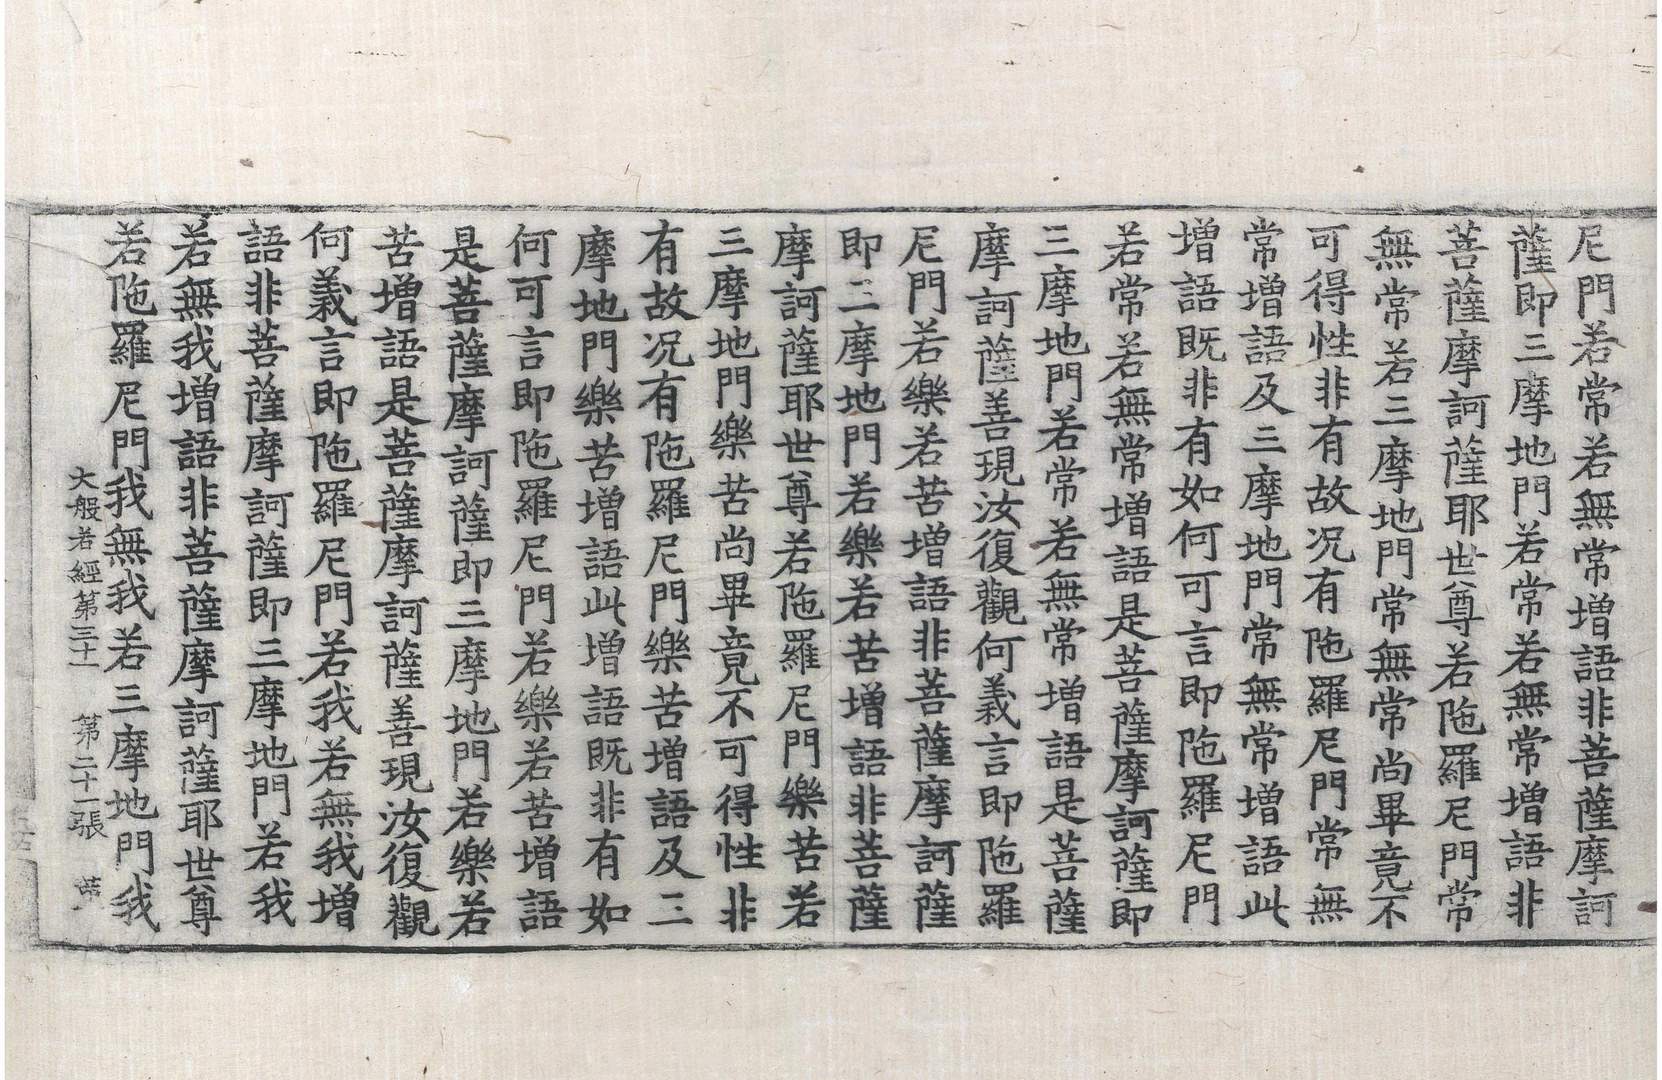 尼門若常若無常增語非菩薩摩訶
薩即三摩地門若常若無常增語非
菩薩摩訶薩耶世尊若陁羅尼門常
無常若三摩地門常無常尚畢竟不
可得性非有故况有陁羅尼門常無
常增語及三摩地門常無常增語此
增語既非有如何可言即陁羅尼門
若常若無常增語是菩薩摩訶薩即
三摩地門若常若無常增語是菩薩
摩訶薩善現汝復觀何義言即陁羅
尼門若樂若苦增語非菩薩摩訶薩
即三摩地門若樂若苦增語非菩薩
摩訶薩耶世尊若陁羅尼門樂苦若
三摩地門樂苦尚畢竟不可得性非
有故况有陁羅尼門樂苦增語及三
摩地門樂苦增語此增語既非有如
何可言即陁羅尼門若樂若苦增語
是菩薩摩訶薩即三摩地門若樂若
苦增語是菩薩摩訶薩善現汝復觀
何義言即陁羅尼門若我若無我增
語非菩薩摩訶薩即三摩地門若我
若無我增語非菩薩摩訶薩耶世尊
若陁羅尼門我無我若三摩地門我
大般若經第三十 第二十一張